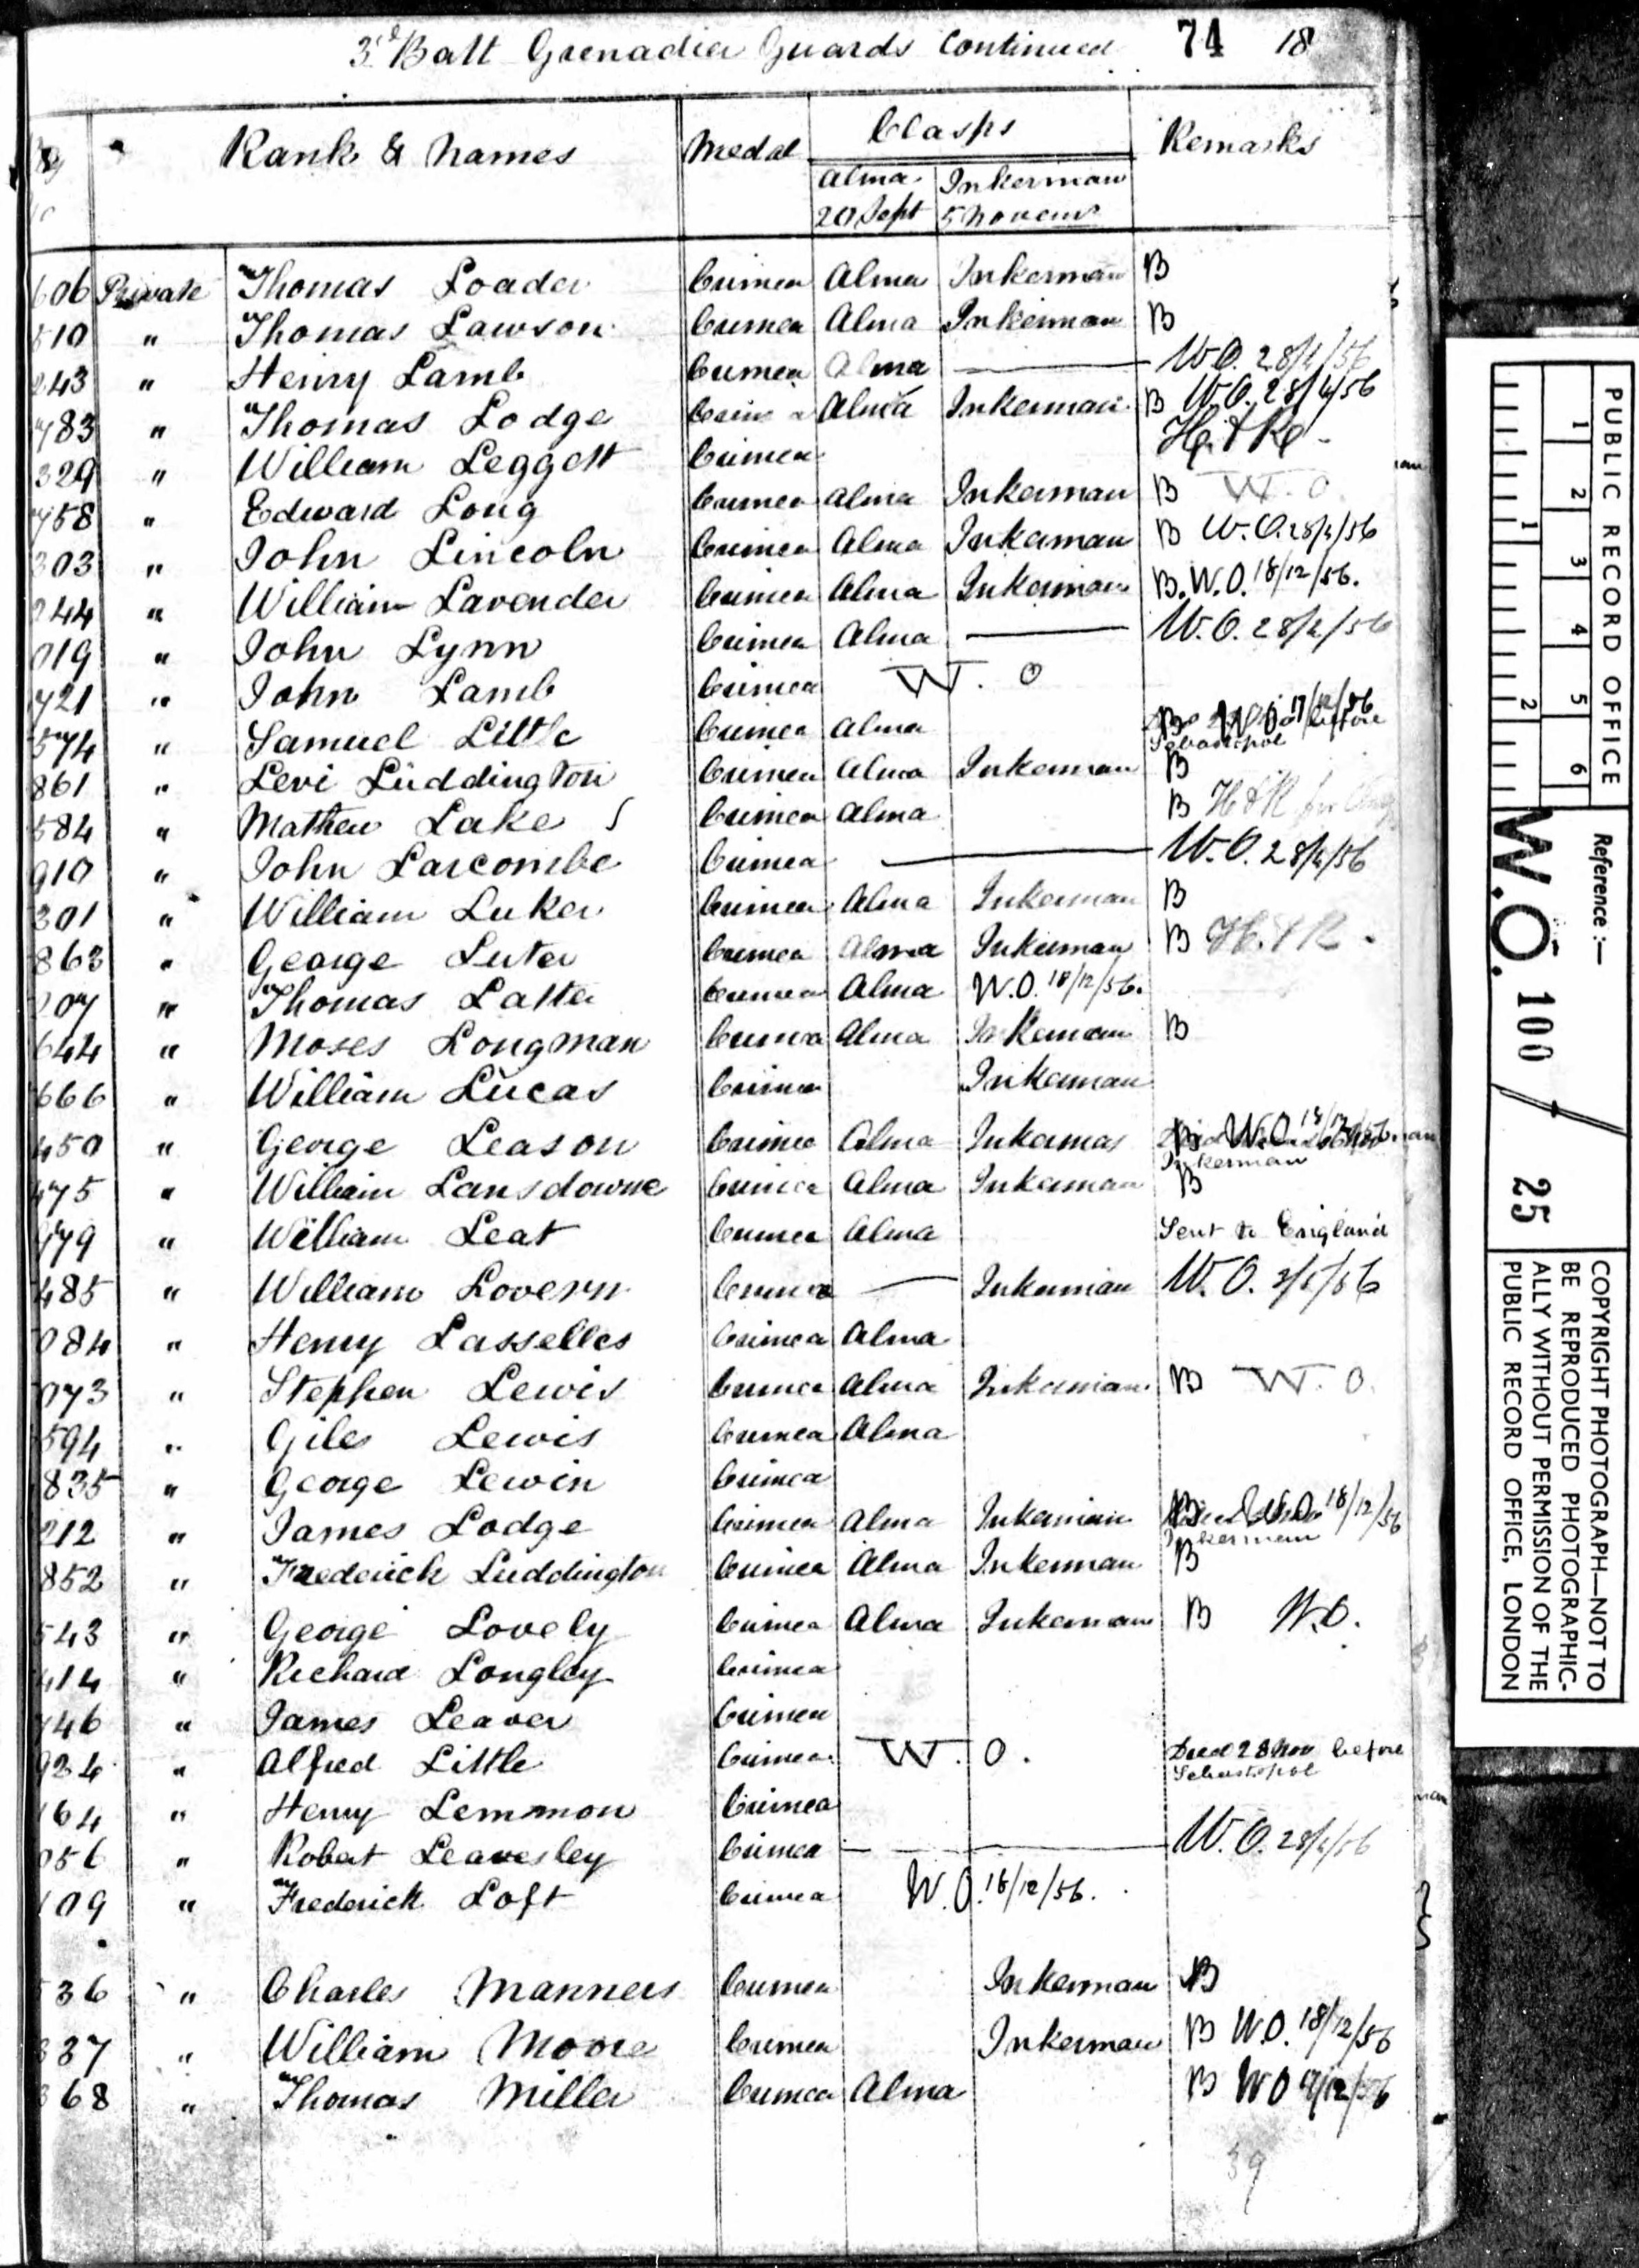 3rd Batt Grenadier Guards Continued 74 18
Rank & Names Medal Clasps Remarks
Alma 20 Sept Inkerman 5 Novemr
606 Private Thomas Loader Crimea Alma Inkerman B
510 " Thomas Lawson Crimea Alma Inkerman B
243 " Henry Lamb Crimea Alma — W.O. 28/4/56
783 " Thomas Lodge Crimea Alma Inkerman B W.O. 28/4/56
329 " William Leggett Crimea H. & R.
758 " Edward Long Crimea Alma Inkerman B W.O.
303 " John Lincoln Crimea Alma Inkerman B W.O. 28/4/56
244 " William Lavender Crimea Alma Inkerman B. W.O. 18/12/56.
019 " John Lynn Crimea Alma — W.O. 28/4/56
721 " John Lamb Crimea W. O
574 " Samuel Little Crimea Alma B W.O 17/12/56 before
Sebastopol
861 " Levi Luddington Crimea Alma Inkerman B
584 " Mathew Lake S Crimea Alma B H & R for
910 " John Larcombe Crimea — W.O. 28/4/56
301 " William Luker Crimea Alma Inkerman B
863 " George Luter Crimea Alma Inkerman B H. & R.
207 " Thomas Latter Crimea Alma W.O. 18/12/56.
644 " Moses Longman Crimea Alma Inkerman B
666 " William Lucas Crimea Inkerman
450 " George Leason Crimea Alma Inkerman B W.O. 18/12/56
Inkerman
475 " William Lansdowne Crimea Alma Inkerman B
779 " William Leat Crimea Alma Sent to England
485 " William Lovern Crimea — Inkerman W.O.
084 " Henry Lasselles Crimea Alma
073 " Stephen Lewis Crimea Alma Inkerman B W. O.
594 " Giles Lewis Crimea Alma
835 " George Lewin Crimea
212 " James Lodge Crimea Alma Inkerman B 18/12/56
Inkerman
852 " Frederick Luddington Crimea Alma Inkerman B
543 " George Lovely Crimea Alma Inkerman B W.O.
414 " Richard Longley Crimea
746 " James Leaver Crimea
924 " Alfred Little Crimea W. O. Died 28 Nov before
Sebastopol
164 " Henry Lemmon Crimea
056 " Robert Leavesley Crimea — W.O. 28/4/56
109 " Frederick Loft Crimea W.O. 18/12/56.
536 " Charles Manners Crimea Inkerman B
337 " William Moore Crimea Inkerman B W.O. 18/12/56
368 " Thomas Miller Crimea Alma B WO /12/56
39
PUBLIC RECORD OFFICE
1 2 3 4 5 6
1 2
Reference :—
W.O. 100 / 25
COPYRIGHT PHOTOGRAPH—NOT TO
BE REPRODUCED PHOTOGRAPHIC-
ALLY WITHOUT PERMISSION OF THE
PUBLIC RECORD OFFICE, LONDON